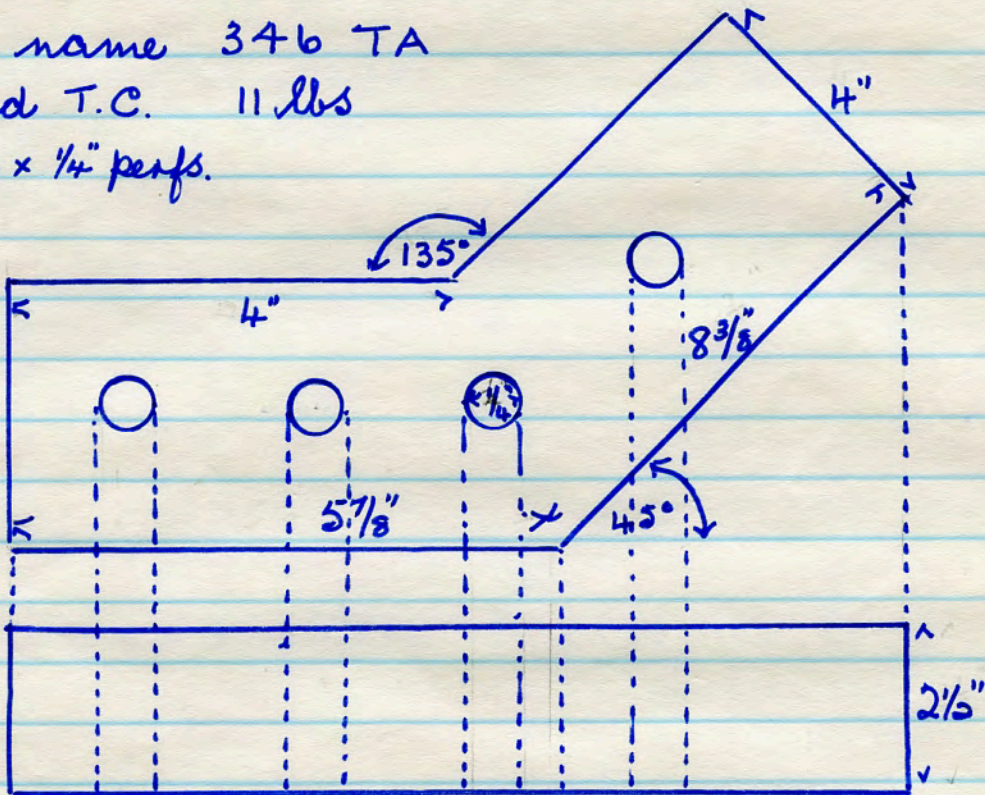 name 346 TA
d T.C. 11 lbs
x 1/4" perfs.
4"
135°
4"
8 3/8"
1/4"
5 7/8"
45°
2 1/2"